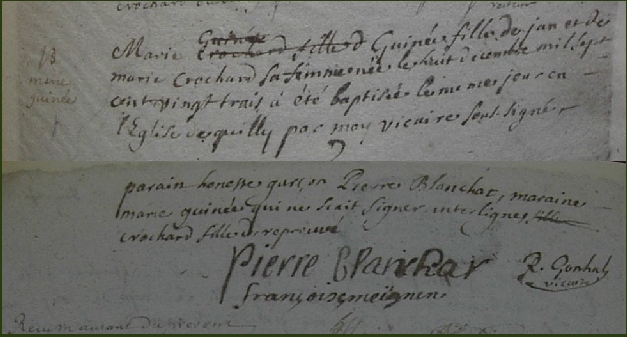 13
marie
guinée
Guinée
Marie crochard fille d Guinée fille de jan et de
marie crochard sa femme née le huit décembre mil sept
cent vingt trais a été baptisée le meme jour en
l'Eglise de quilly par moy vicaire sous signé
parain honeste garçon Pierre Blanchar, maraine
marie guinée qui ne scait signer, interligne fille
crochard fille d, reprouvé
Pierre Blanchar
françois meignen
R. Gonhal
vicaire